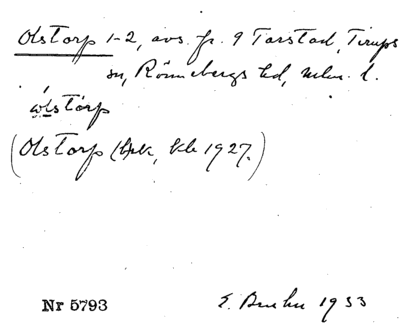 Olstorp 1-2, avs. fr. 9 Tarstad, Tirups
sn, Rönnebergs hd, Mlm. l.
ólstòrp
(Olstorp Epk, Kb 1927.)
Nr 5793 E. Bruhn 1933